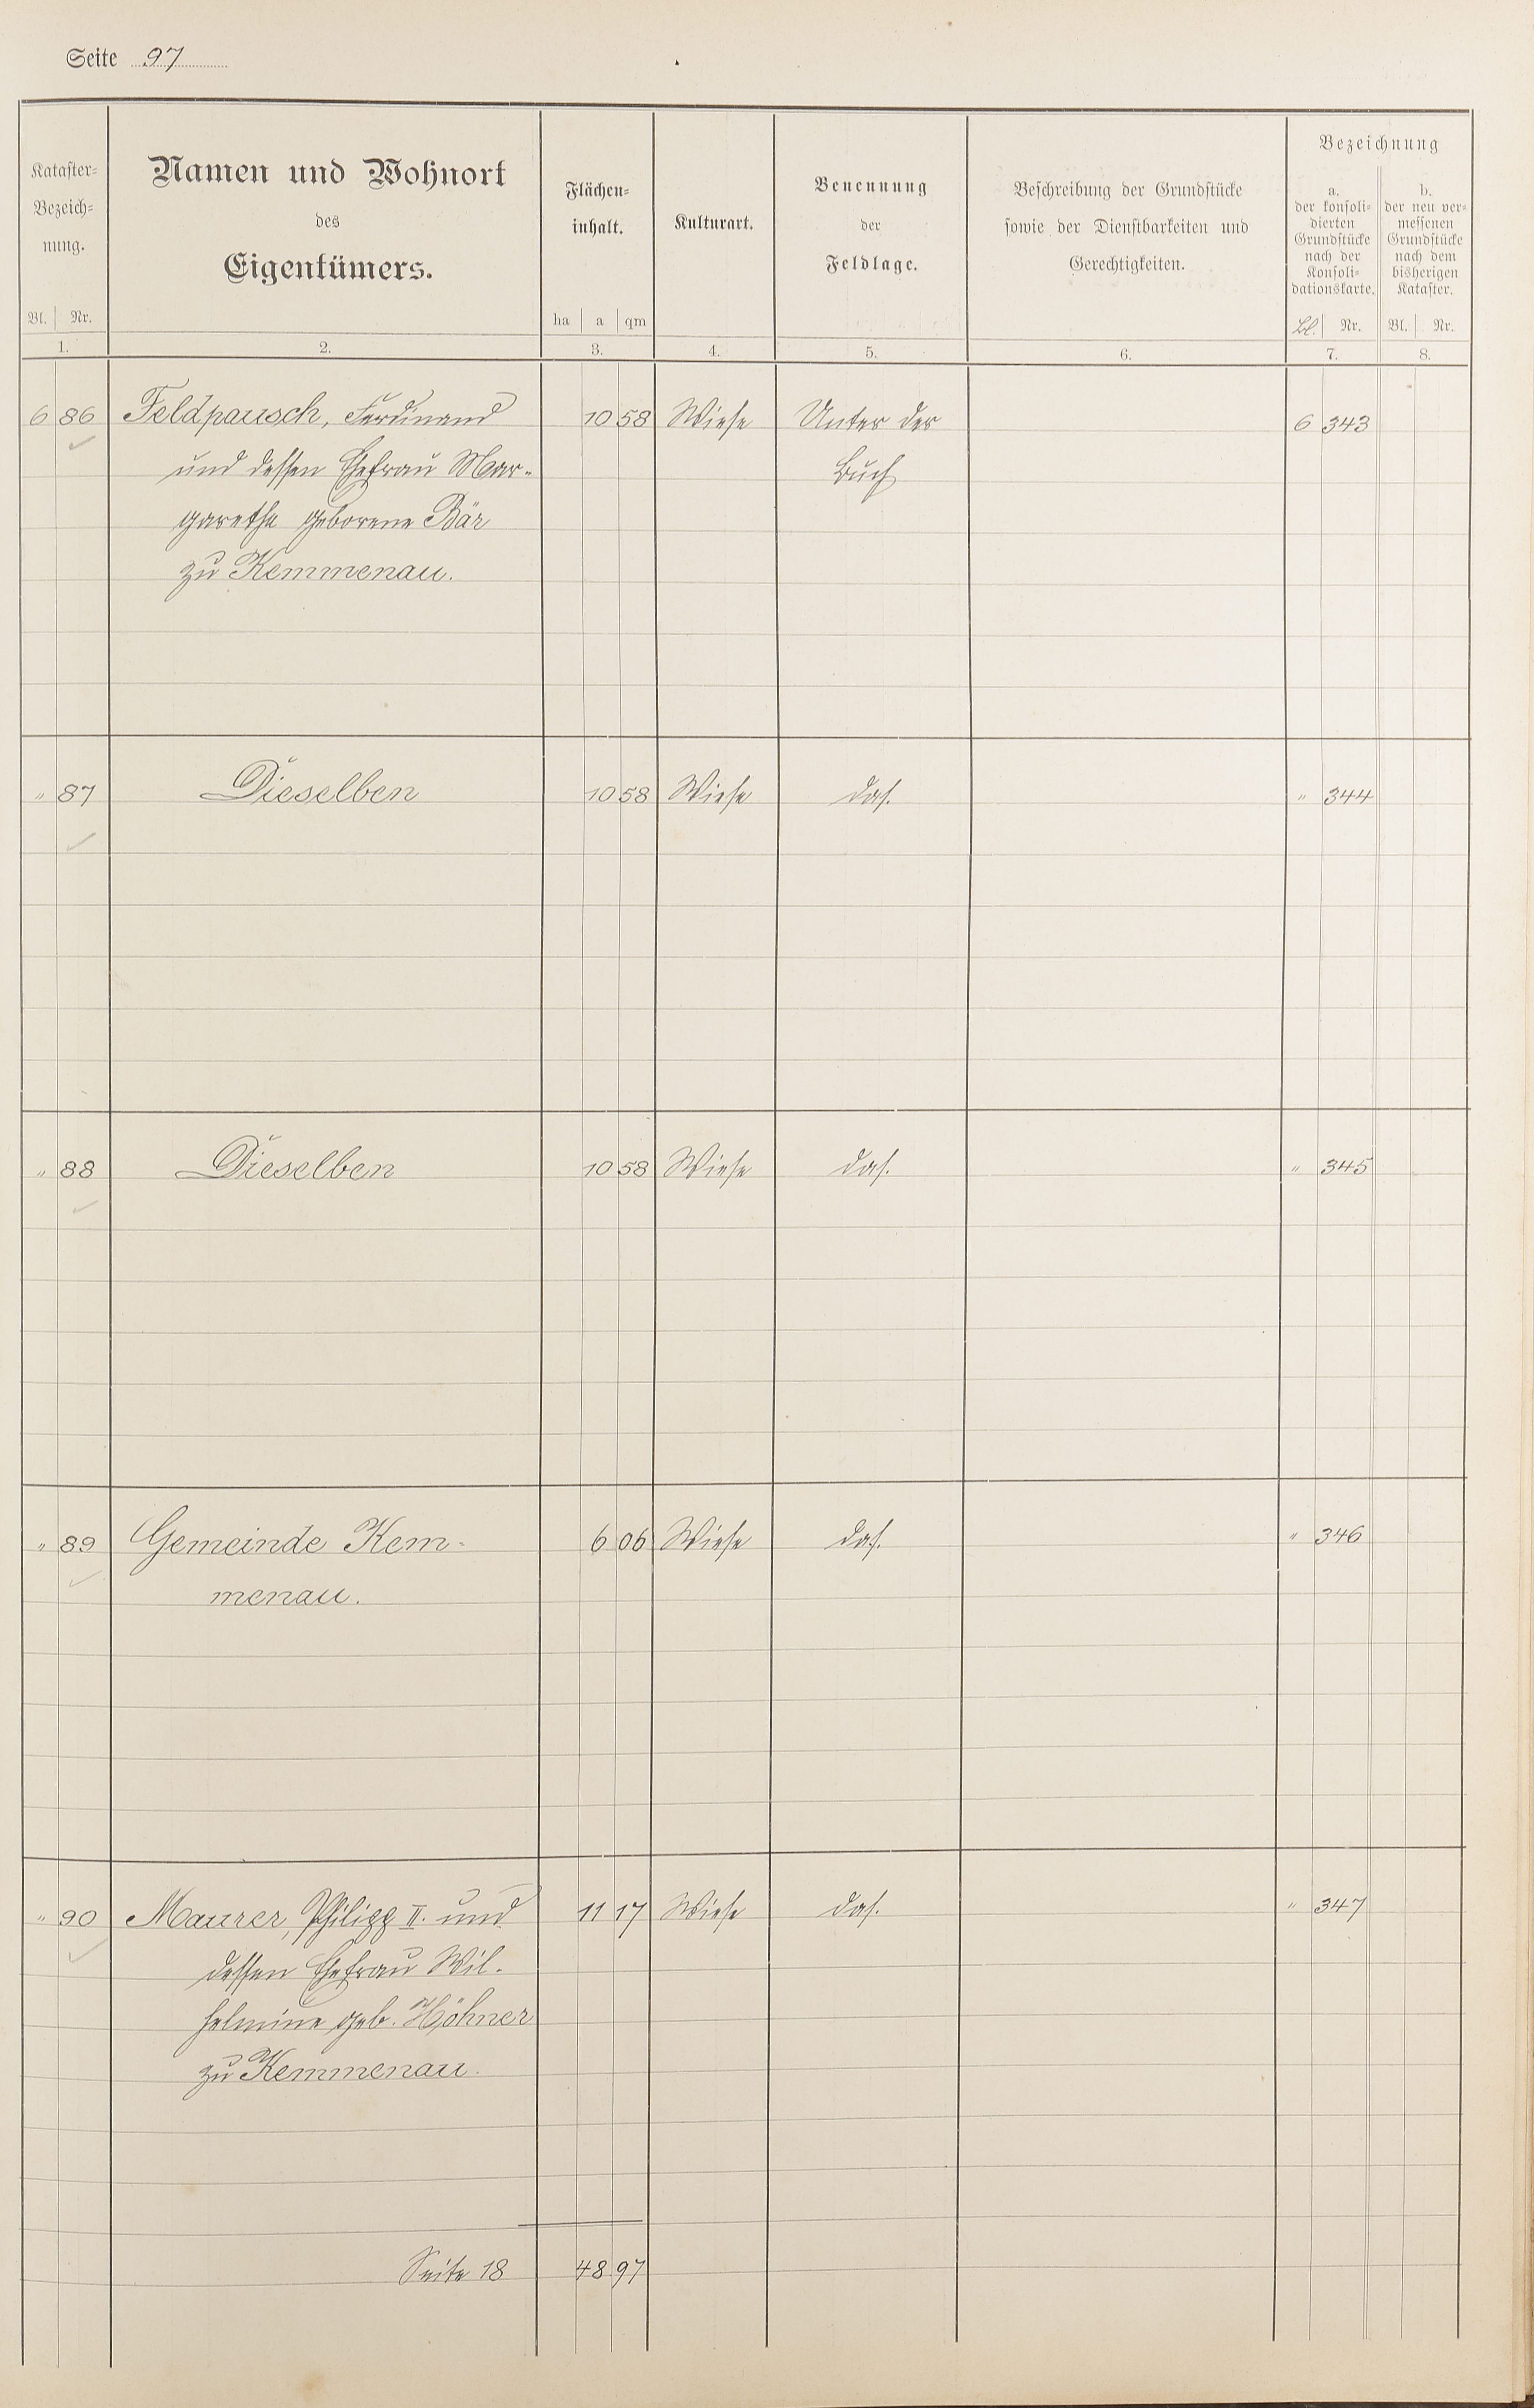 Seite 97
Kataster-
Bezeich-
nung.
Bl. Nr.
1.
Namen und Wohnort
des
Eigentümers.
2.
Flächen-
inhalt.
ha a qm
3.
Kulturart.
4.
Benennung
der
Feldlage.
5.
Beschreibung der Grundstücke
sowie der Dienstbarkeiten und
Gerechtigkeiten.
6.
Bezeichnung
a.
der konsoli-
dierten
Grundstücke
nach der
Konsoli-
dationskarte.
Bl. Nr.
7.
b.
der neu ver-
messenen
Grundstücke
nach dem
bisherigen
Kataster.
Bl. Nr.
8.
6 86 Feldpausch, Ferdinand 10 58 Wiese Unter der 6 343
und dessen Ehefrau Mar- Buch
garethe geborene Bär
zu Kemmenau.
" 87 Dieselben 10 58 Wiese das. " 344
" 88 Dieselben 10 58 Wiese das. " 345
" 89 Gemeinde Kem- 6 06 Wiese das. " 346
menau.
" 90 Maurer, Philipp II. und 11 17 Wiese das. " 347
dessen Ehefrau Wil-
helmine geb. Höhner
zu Kemmenau.
Seite 18 48 97